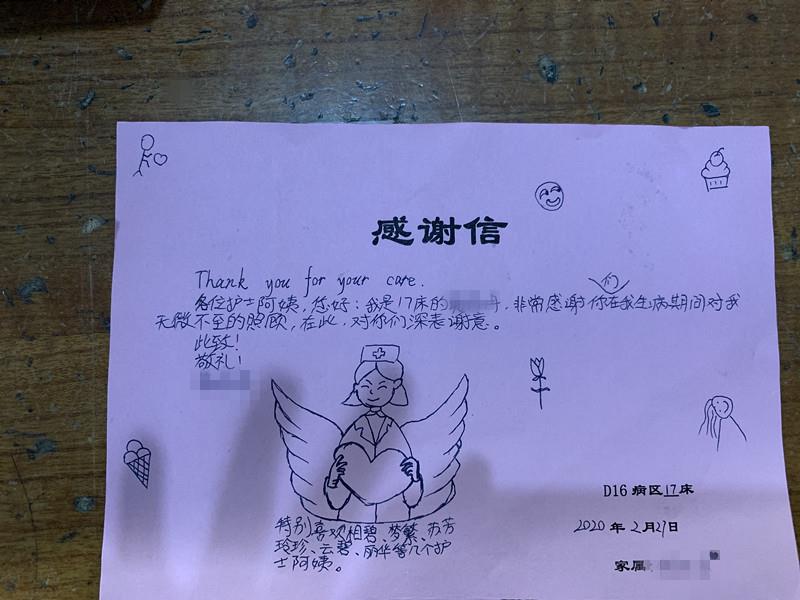 感谢信
Thank you for your care.
们
各位护士阿姨，您好：我是17床的 ，非常感谢你在我生病期间对我
无微不至的照顾，在此，对你们深表谢意。
此致！
敬礼！
特别喜欢相碧、梦繁、苏芳
玲珍、云碧、丽华等几个护
士阿姨。
D16 病区17床
2020 年 2月27日
家属